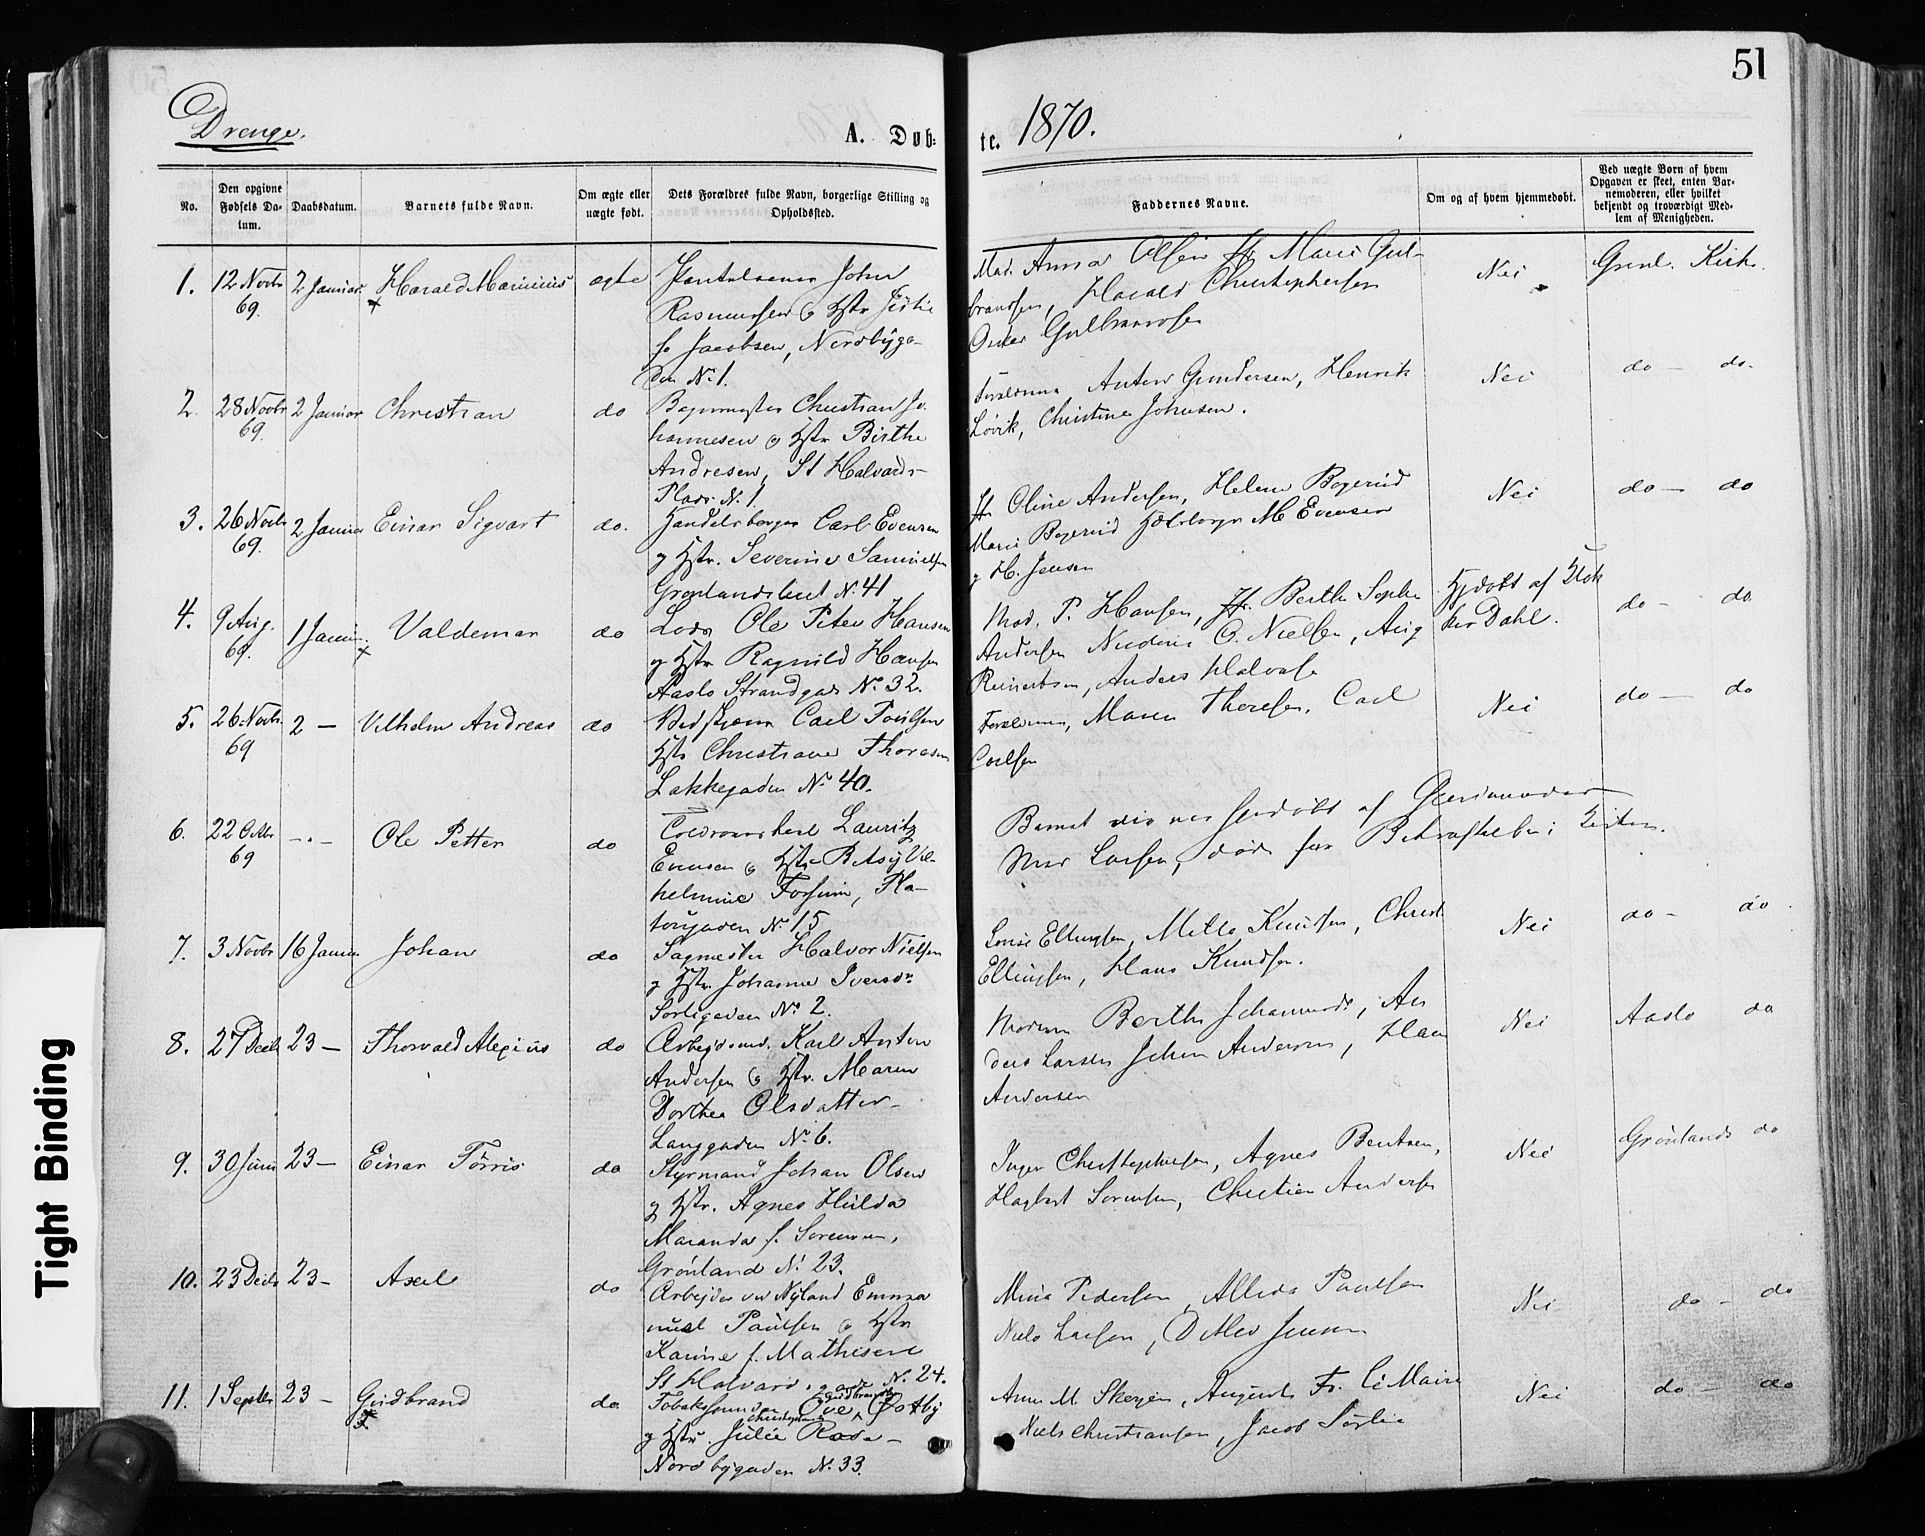 51
Drenge.
A. Døb-
te. 1870.
No.
Den opgivne Fødsels Da-
tum.
Daabsdatum.
Barnets fulde Navn.
Om ægte eller
uægte født.
Dets Forældres fulde Navn, borgerlige Stilling og
Opholdssted.
Faddernes Navne.
Om og af hvem hjemmedøbt.
Ved uægte Børn af hvem
Opgaven er skeet, enten Bar-
nemoderen, eller hvilket
bekjendt og troværdigt Med-
lem af Menigheden.
1. 12 Novbr 69. 2 Januar Harald Marinius ægte
John
Rasmussen
f. Jacobsen, Nordbyga-
den No 1.
Mad. Anna Olsen Marie Gul-
brandsen, Harald Christophersen
Oscar Gulbrandsen
Nei
Grønl. Kirke.
2. 28 Novbr 69. 2 Januar Christian do
Christian Jo-
hannesen og Hstr Birthe
Andresen, St Halvards-
Plads No 1
Forældrene Anton Gundersen, Henrik
Løvik, Christine Johnsen.
Nei
do - do
3. 26 Novbr 69. 2 Januar Einar Sigvart do.
Handelsborger Carl Evensen
og Hstr. Severine Samuelsen
Grønlandsleret No 41
Oline Andersen, Helene Bogerud
Marie Bogerud M Evensen
og H. Jensen
Nei
do - do
4. 9 Aug. 69. 1 Januar Valdemar do
Lods Ole Peter Hansen
og Hstr Ragnild Hansen
Aaslo Strandgade No 32.
Mad. P. Hansen, Berthe Sophie
Andersen O. Nielsen, Aug
Reinertsen, Anders Halvorsen
Hjdøbt af Klok
ker Dahl.
do - do
5. 26 Novbr. 69 2 - Vilhelm Andreas do
Carl Poulsen
Hstr Christiane Thoresen
Lakkegaden No 40.
Forældrene, Maren Thoresen, Carl
Carlsen
Nei
do - do
6. 22 Octbr 69 -"- Ole Petter do
Lauritz
Evensen og Hstr Betsy Vil-
helmine Fossum, Pla-
tougaden No 15
Barnet hjdøbt af
Larsen, døde før Bekræftelse i Kirken.
7. 3 Novbr 16 Januar Johan do
Sagmester Halvor Nielsen
og Hstr. Johanne Iversdr
Sorligaden No 2.
Louise Ellingsen, Mette Knudsen, Christ
Ellingsen, Hans Knudsen.
Nei
do - do
8. 27 Decb 23 - Thorvald Alexius do
Arbejdsmd. Karl Anton
Andersen og Hstr. Maren
Dorthea Olsdatter
Langgaden No 6.
Moderen Berthe Johannesd, An
ders Larsen Johan Andersen, Han
Andersen
Nei
Aaslo do
9. 30 Juni 23 - Einar Tørris do
Styrmand Johan Olsen
og Hstr. Agnes Hulda
Maranda f. Sorensen,
Grønland No 23.
Inger Christophersen, Agnes Bentsen,
Hagbart Sorensen, Christian Andersen
Nei
Grønlands do
10. 23 Decbr 23 - Axel do
Arbejder ved Nyland Emma
nuel Paulsen og Hstr
Karine f. Mathisen
St Halvards gade No. 24.
Mina Pedersen, Paulsen
Niels Larsen, Detlev Jensen
Nei
do - do
11. 1 Septbr 23 - Gudbrand do
Gudbrandsen
Ove Østby
og Hstr. Julie Rode
Nordbygaden No. 33.
Anne M Skøyen, Auguste Fr. le Maire
Niels Christiansen, Jacob Sørlie
Nei
do - do
Tight Binding